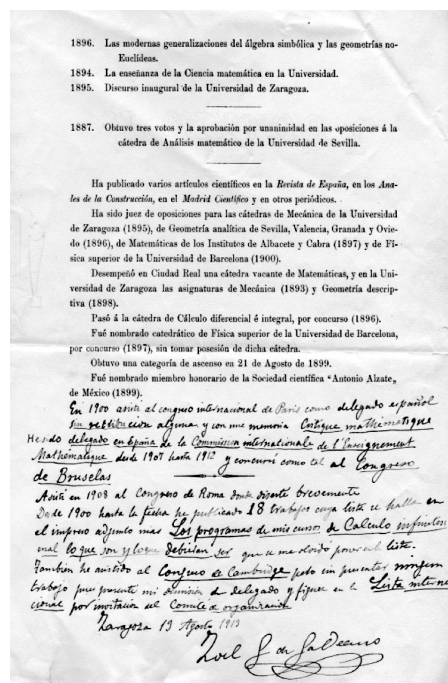 1896. Las modernas generalizaciones del álgebra simbólica y las geometrías no-
Euclídeas.
1894. La enseñanza de la Ciencia matemática en la Universidad.
1895. Discurso inaugural de la Universidad de Zaragoza.
1887. Obtuvo tres votos y la aprobación por unanimidad en las oposiciones á la
cátedra de Análisis matemático de la Universidad de Sevilla.
Ha publicado varios artículos científicos en la Revista de España, en los Ana-
les de la Construcción, en el Madrid Científico y en otros periódicos.
Ha sido juez de oposiciones para las cátedras de Mecánica de la Universidad
de Zaragoza (1895), de Geometría analítica de Sevilla, Valencia, Granada y Ovie-
do (1896), de Matemáticas de los Institutos de Albacete y Cabra (1897) y de Fí-
sica superior de la Universidad de Barcelona (1900).
Desempeñó en Ciudad Real una cátedra vacante de Matemáticas, y en la Uni-
versidad de Zaragoza las asignaturas de Mecánica (1893) y Geometría descrip-
tiva (1898).
Pasó á la cátedra de Cálculo diferencial é integral, por concurso (1896).
Fué nombrado catedrático de Física superior de la Universidad de Barcelona,
por concurso (1897), sin tomar posesión de dicha cátedra.
Obtuvo una categoría de ascenso en 21 de Agosto de 1899.
Fué nombrado miembro honorario de la Sociedad científica "Antonio Alzate„
de México (1899).
En 1900 asistí al congreso internacional de París como delegado español
sin retribución alguna y con una memoria Critique mathématique
He sido delegado en España de la Commission internationale de l'Enseignement
Mathématique desde 1907 hasta 1912 y concurrí como tal al Congreso
de Bruselas
Asistí en 1908 al Congreso de Roma donde diserté brevemente
Desde 1900 hasta la fecha he publicado 18 trabajos cuya lista se halla en
el impreso adjunto mas Los programas de mis cursos de Calculo infinitesi
mal lo que son y lo que debieran ser que se me olvidó poner al liste.
También he asistido al Congreso de Cambridge pero sin presentar ningun
trabajo pues presenté mi dimisión de delegado y figure en la Liste interna
cional por invitacion del Comité de organización
Zaragoza 13 Agosto 1913
Zoel G. de Galdeano